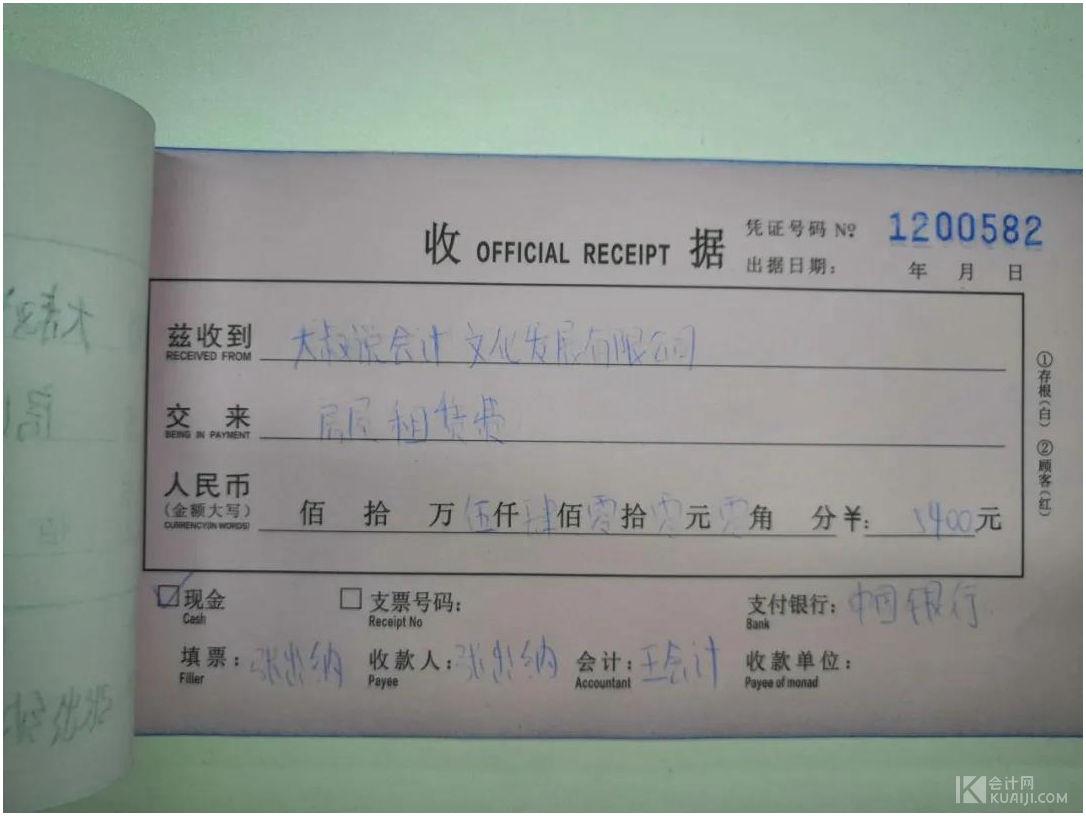 收 OFFICIAL RECEIPT 据
凭证号码 Nº 1200582
出据日期： 年 月 日
兹收到 大叔说会计文化发展有限公司
RECEIVED FROM
交来 房屋租赁费
BEING IN PAYMENT
人民币
(金额大写) 佰 拾 万伍仟肆佰零拾零元零角 分￥：5400元
CURRENCY(IN WORDS)
①存根(白) ②顾客(红)
☑现金 □支票号码： 支付银行：中国银行
Cash Receipt No Bank
填票：张出纳 收款人：张出纳 会计：王会计 收款单位：
Filler Payee Accountant Payee of monad
会计网
KUAIJI.COM